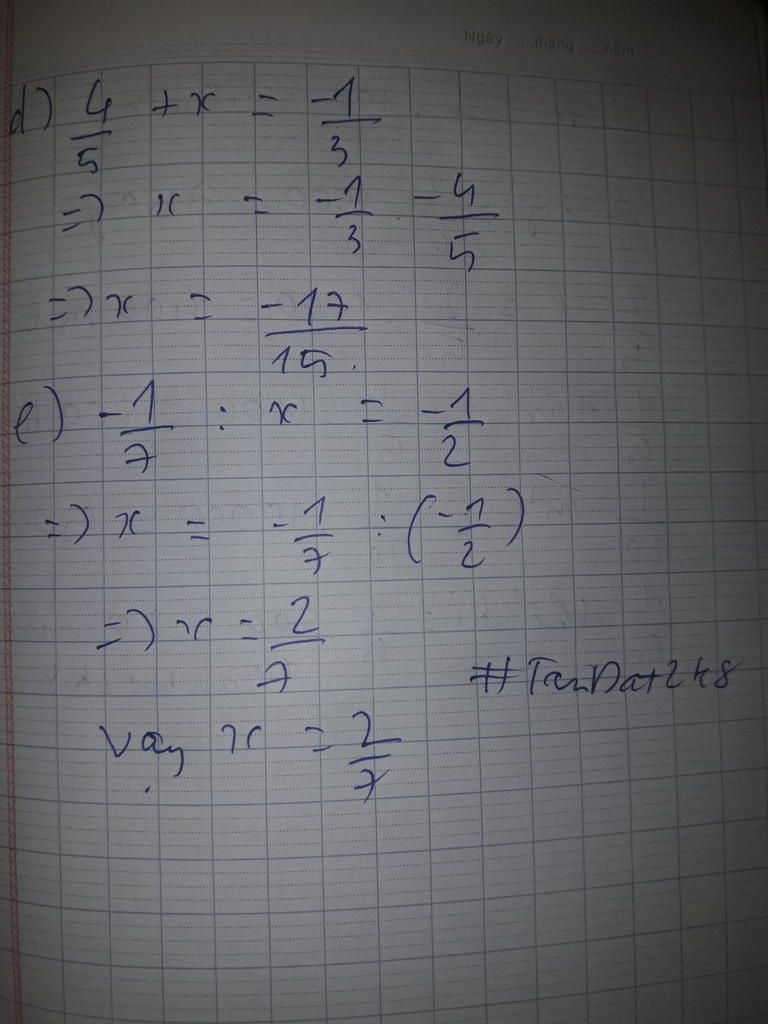 Ngày ......tháng ......năm......
d) 4/5 + x = -1/3
=> x = -1/3 -4/5
=> x = -17/15.
e) -1/7 : x = -1/2
=> x = -1/7 : (-1/2)
=> x = 2/7
#TanDat248
Vậy x = 2/7